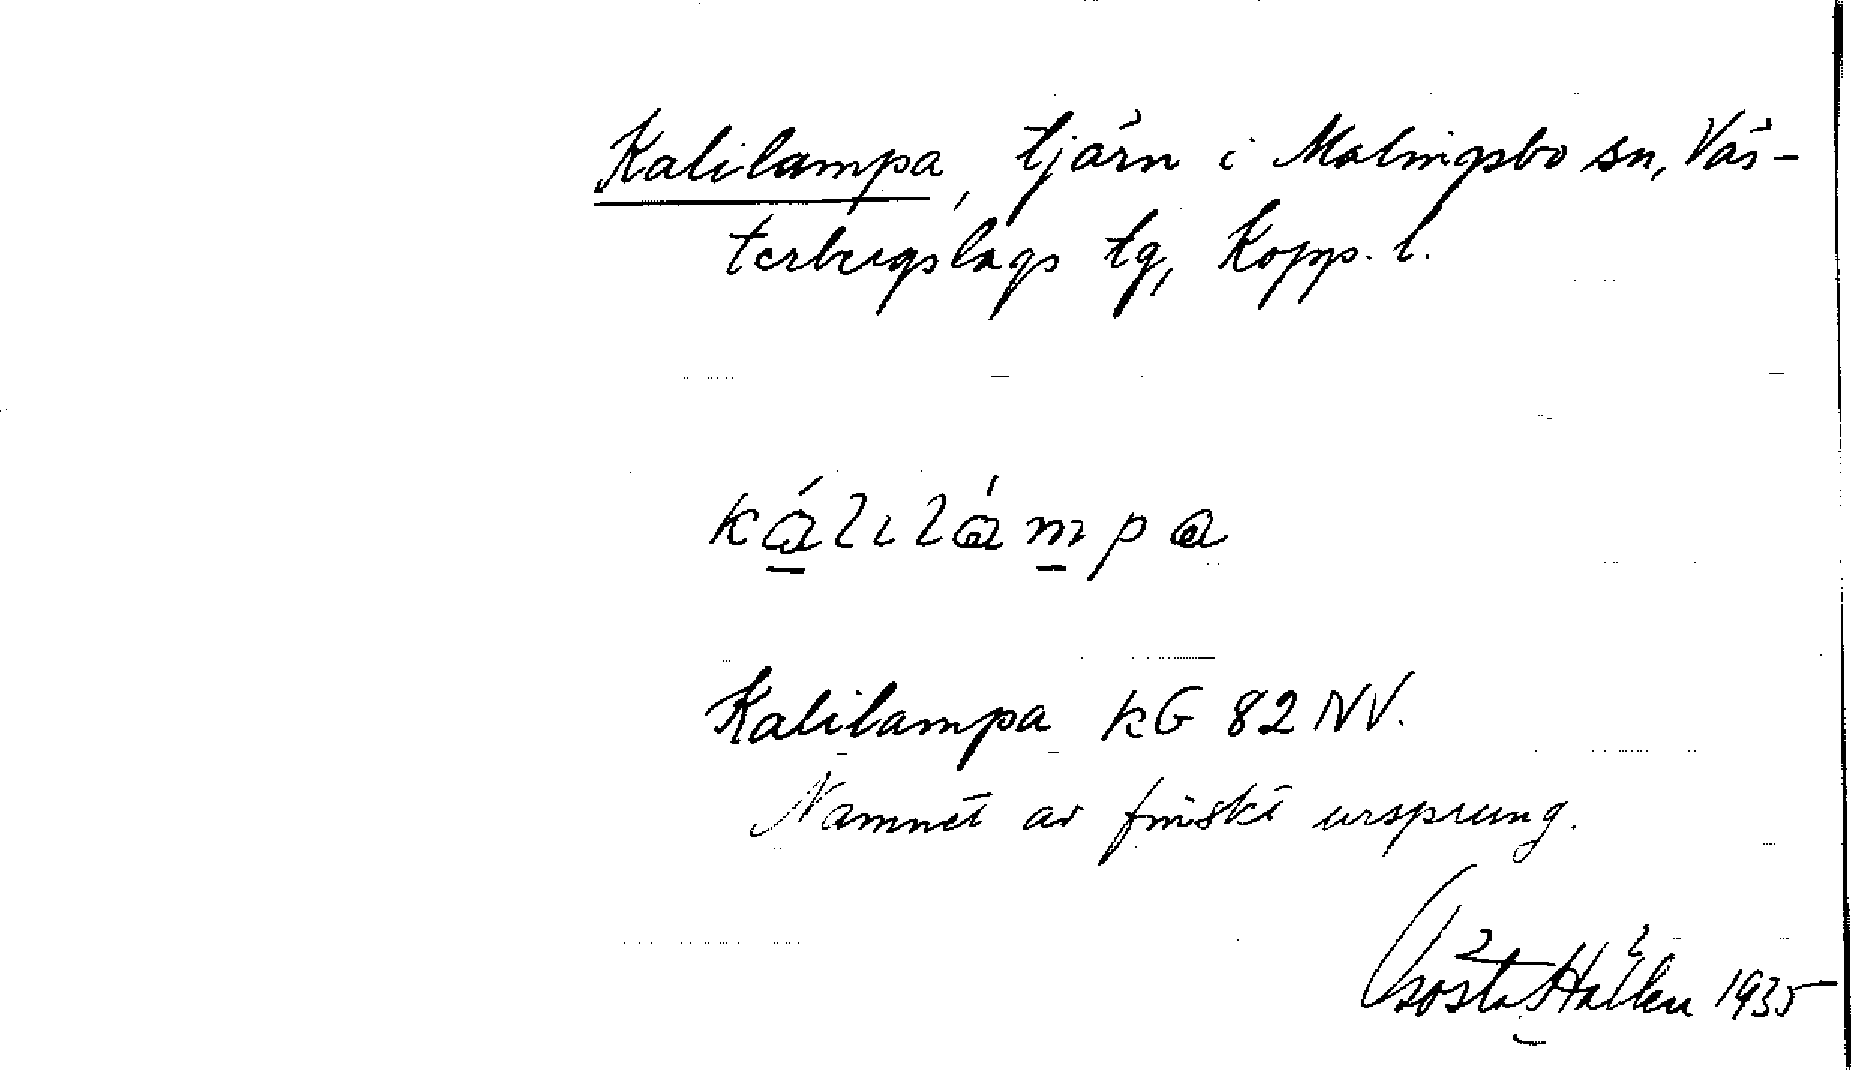 Kalilampa, tjärn i Malingsbo sn, Väs-
terbergslags tg, Kopp. l.
kálılámpa
Kalilampa kG 82 NV.
Namnet av finskt ursprung.
Gösta Hallén 1935